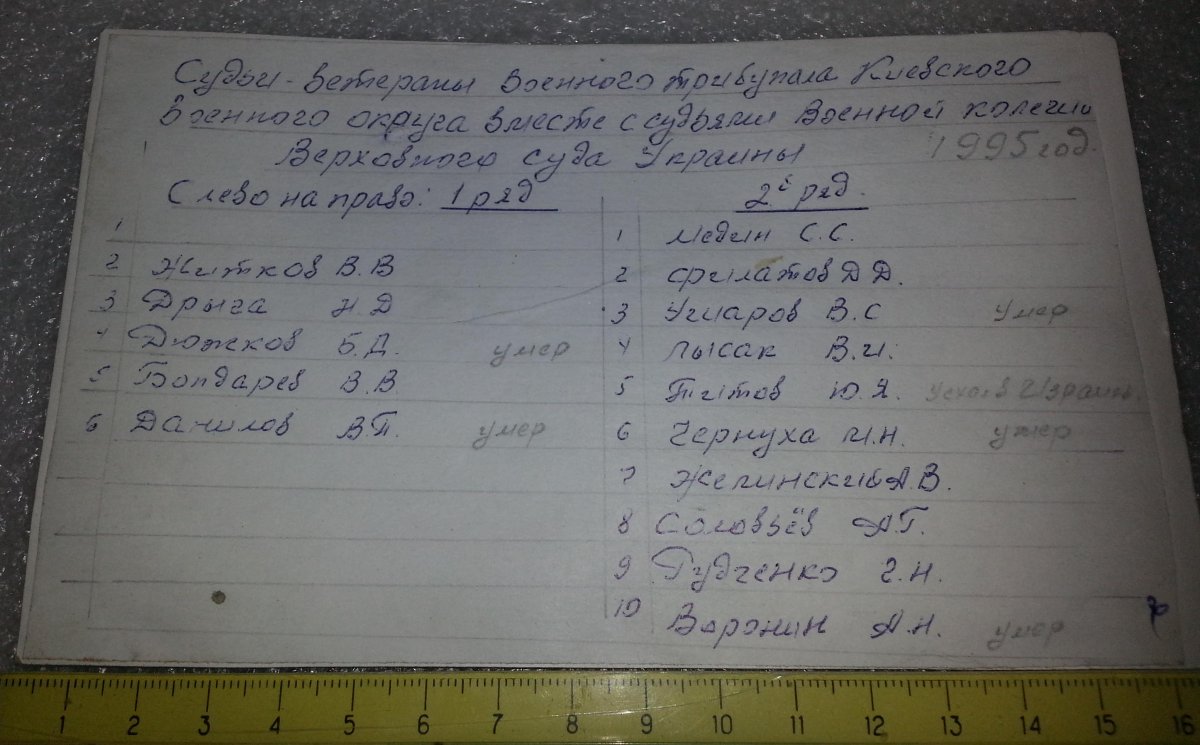 Судьи-ветераны Военного трибунала Киевского
Военного округа вместе с судьями Военной колегии
Верховного суда Украины 1995 год.
С лево на право: 1 ряд
1
2 Житков В.В
3 Дрыга Н Д
4 Дюжков Б.Д. умер
5 Бондарев В.В
6 Данилов В.П. умер
2й ряд.
1 Медин С.С.
2 Филатов Д Д.
3 Угларов В.С умер
4 Лысак В.И.
5 Титов Ю.Я. Уехал в Израиль.
6 Чернуха И.Н. умер
7 Желинский А.В.
8 Соловьёв А Г.
9 Рудченко Г.Н.
10 Воронин А.Н. умер
1 2 3 4 5 6 7 8 9 10 11 12 13 14 15 16